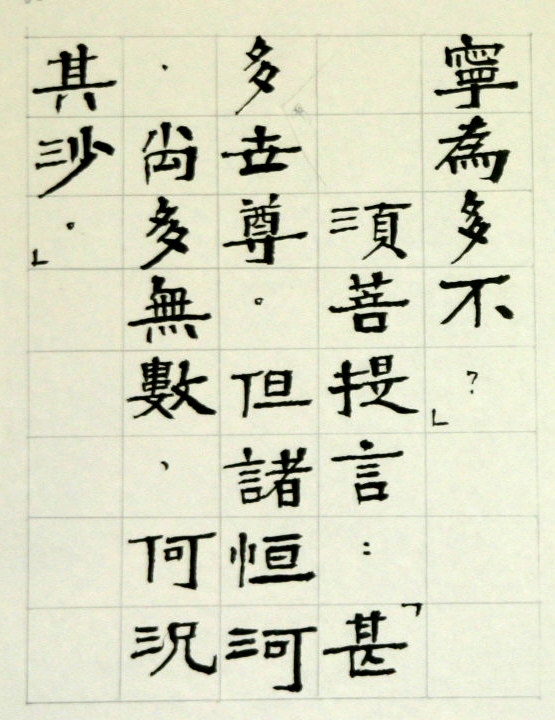 寧為多不?」
須菩提言:「甚
多世尊。但諸恒河
,尚多無數,何況
其沙。」